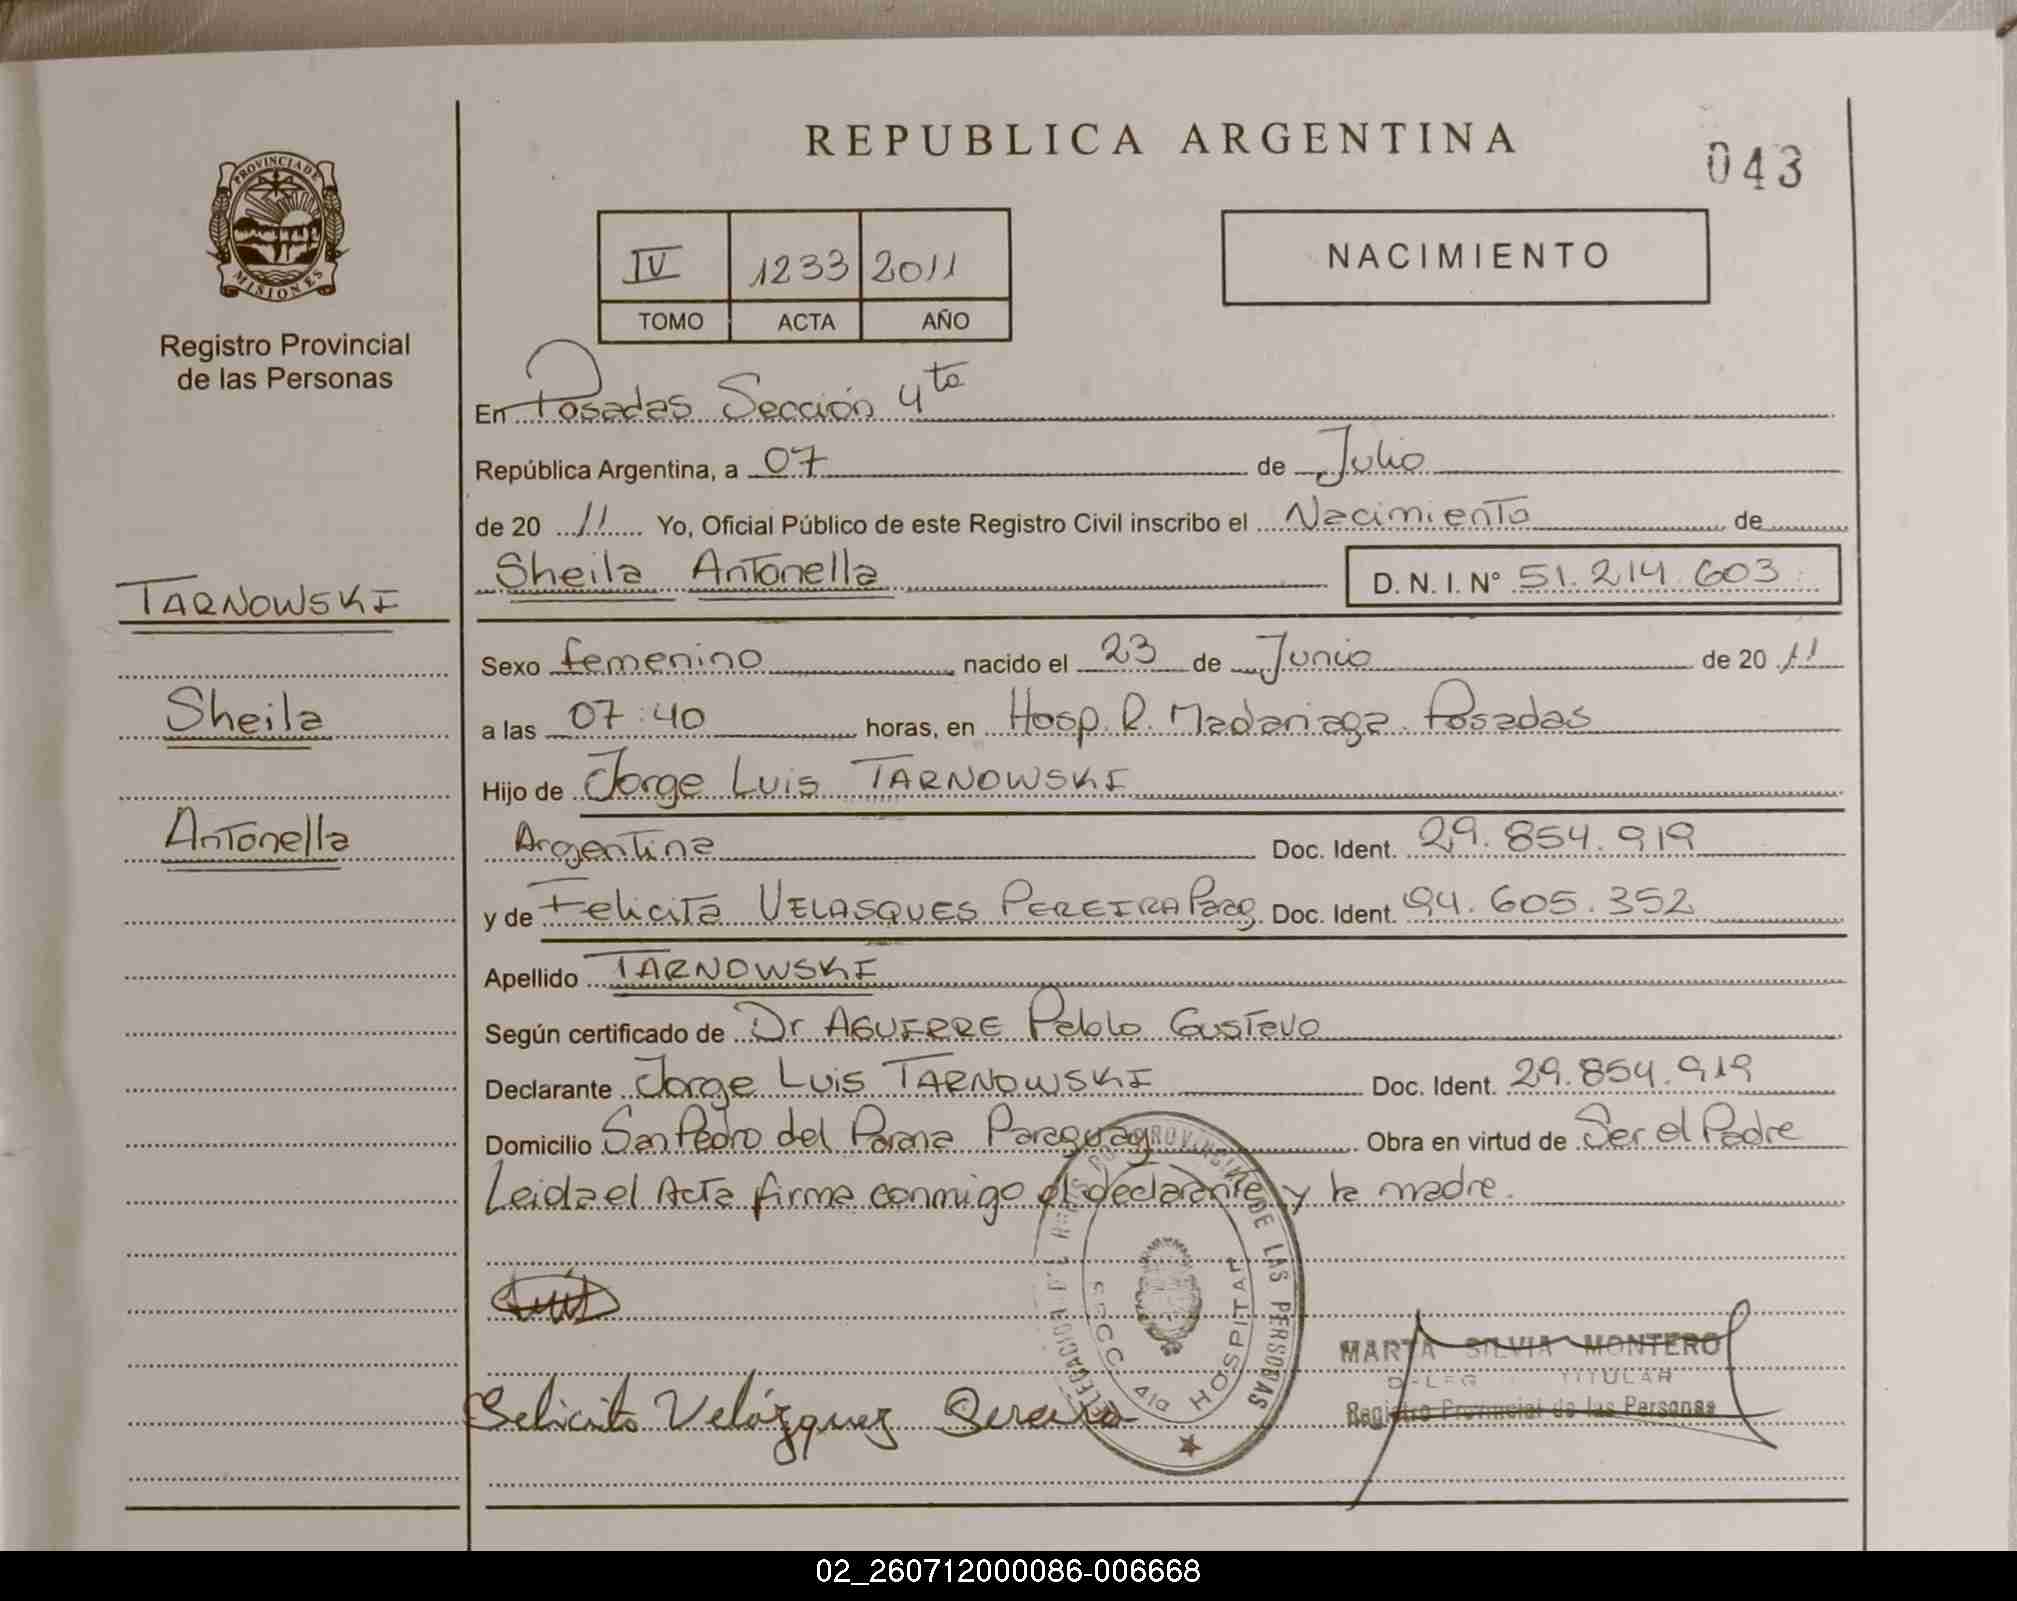 REPUBLICA ARGENTINA
043
PROVINCIA DE
MISIONES
Registro Provincial
de las Personas
IV 1233 2011
TOMO ACTA AÑO
NACIMIENTO
En Posadas Sección 4ta
República Argentina, a 07 de Julio
de 20 11 Yo, Oficial Público de este Registro Civil inscribo el Nacimiento de
Sheila Antonella D. N. I. N° 51.214.603
TARNOWSKI
Sheila
Antonella
Sexo femenino nacido el 23 de Junio de 20 11
a las 07:40 horas, en Hosp. R. Madariaga. Posadas
Hijo de Jorge Luis TARNOWSKI
Argentina Doc. Ident. 29.854.919
y de Felicita VELASQUES PEREIRA Parag. Doc. Ident. 94.605.352
Apellido TARNOWSKI
Según certificado de Dr AGUIRRE Pablo Gustavo
Declarante Jorge Luis TARNOWSKI Doc. Ident. 29.854.919
Domicilio San Pedro del Parana Paraguay Obra en virtud de Ser el Padre
Leida el Acta firma conmigo el declarante y la madre.
PROVINCIAL DE LAS PERSONAS
SECC 4ta HOSPITAL
MARTA SILVIA MONTERO
TITULAR
Registro Provincial de las Personas
Felicita Velázquez Pereira
02_260712000086-006668